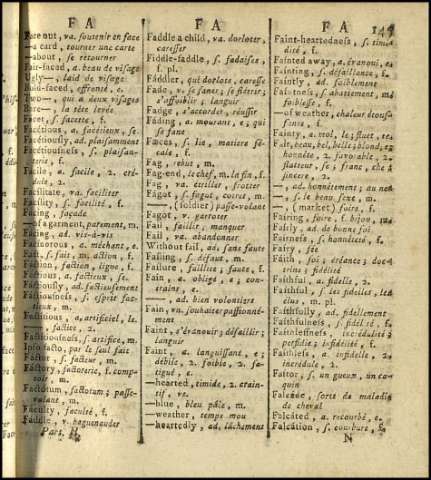 F A
Face out, va. soutenir en face
—a card, tourner une carte
—about, se retourner
Fair-faced, a. beau de visage
Ugly—, laid de visage
Bold-faced, effronté, e.
Two—, qui a deux visages
Bare—, la tête levée
Facet, s. facette, f.
Facétious, a. facétieux, se.
Facétiously, ad. plaisamment
Facétiousness, s. plaisan-
terie, f.
Facile, a. facile, 2. cré-
dule, 2.
Facilitate, va. faciliter
Facility, s. facilité, f.
Facing, façade
—of a garment, parement, m.
Facing, ad. vis-à-vis
Facinorous, a. méchant, e.
Fact, s. fait, m. action, f.
Faction, faction, ligue, f.
Factious, a. factieux, se.
Factiously, ad. factieusement
Factiousness, s. esprit fac-
tieux, m.
Factitious, a. artificiel, le.
—, factice, 2.
Factitiousness, s. artifice, m.
Ipso facto, par le seul fait
Factor, s. facteur, m.
Factory, factorerie, f. comp-
toir, m.
Factotum, factotum; passe-
volant, m.
Faculty, faculté, f.
Faddle, v. baguenauder
Part. II.
F A
Faddle a child, va. dorloter,
caresser
Fiddle-faddle, s. fadaises,
f. pl.
Faddler, qui dorlote, caresse
Fade, v. se faner, se flétrir;
s'affoiblir; languir
Fadge, s'accorder, réussir
Fading, a. mourant, e; qui
se fane
Fæces, s. lie, matiere fé-
cale, f.
Fag, rebut, m.
Fag-end, le chef, m. la fin, f.
Fag, va. étriller, frotter
Fagot, s. fagot, cotret, m.
—, (soldier) passe-volant
Fagot, v. garroter
Fail, faillir, manquer
Fail, va. abandonner
Without fail, ad. sans faute
Failing, s. défaut, m.
Failure, faillite; faute, f.
Fain, a. obligé, e; con-
traint, e.
—, ad. bien volontiers
Fain, vn. souhaiter passionné-
ment
Faint, s'évanouir; défaillir;
languir
Faint, a. languissant, e;
débile, 2. foible, 2. fa-
tigué, e.
—hearted, timide, 2. crain-
tif, ve.
—blue, bleu pâle, m.
—weather, temps mou
—heartedly, ad. lâchement
F A 145
Faint-heartedness, s. timi-
dité, f.
Fainted away, a. évanoui, e.
Fainting, s. défaillance, f.
Faintly, ad. foiblement
Faintness, s. abattement, m.
foiblesse, f.
—of weather, chaleur étouf-
fante, f.
Fainty, a. mol, le; fluet, te.
Fair, beau, bel, belle; blond, e;
honnête, 2. favorable, 2.
flatteur, se; franc, che;
sincere, 2.
—, ad. honnêtement; au net
—, s. le beau sexe, m.
—, (market) foire, f.
Fairing, foire, f. bijou, m.
Fairly, ad. de bonne foi
Fairness, s. honnêteté, f.
Fairy, fée
Faith, foi; créance; doc-
trine; fidélité
Faithful, a. fidelle, 2.
Faithful, s. les fidelles, les
élus, m. pl.
Faithfully, ad. fidellement
Faithfulness, s. fidélité, f.
Faithlessness, incrédulité;
perfidie; infidélité, f.
Faithless, a. infidelle, 2.
incrédule, 2.
Faitor, s. un gueux, un co-
quin
Falcade, sorte de maladie
de cheval
Falcated, a. recourbé, e.
Falcation, s. courbure, f.
N